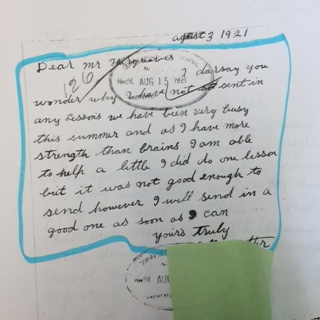 august 3 1921
Dear mr Hargreaves
126
Recvd AUG 15 1921
I darsay you
wonder why I have not sent in
any lessons we have been very busy
this summer and as I have more
strength than brains I am able
to help a little I did do one lesson
but it was not good enough to
send however I will send in a
good one as soon as I can
yours truly
Recvd AUG